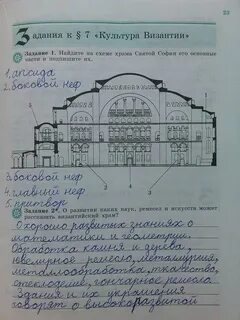 23
Задания к § 7 «Культура Византии»
Задание 1. Найдите на схеме храма Святой Софии его основные
части и подпишите их.
1. апсида
2. боковой неф
3. боковой неф
4. главный неф
5. притвор
Задание 2*. О развитии каких наук, ремесел и искусств может
рассказать византийский храм?
О хорошо развитых знаниях о
математики и геометрие.
Обработка камня и дерева,
ювелирное ремесло, металлургия,
металлообработка, ткачество,
стеклоделие, гончарное ремесло
Здания и их украшения
говорят о высокоразвитой